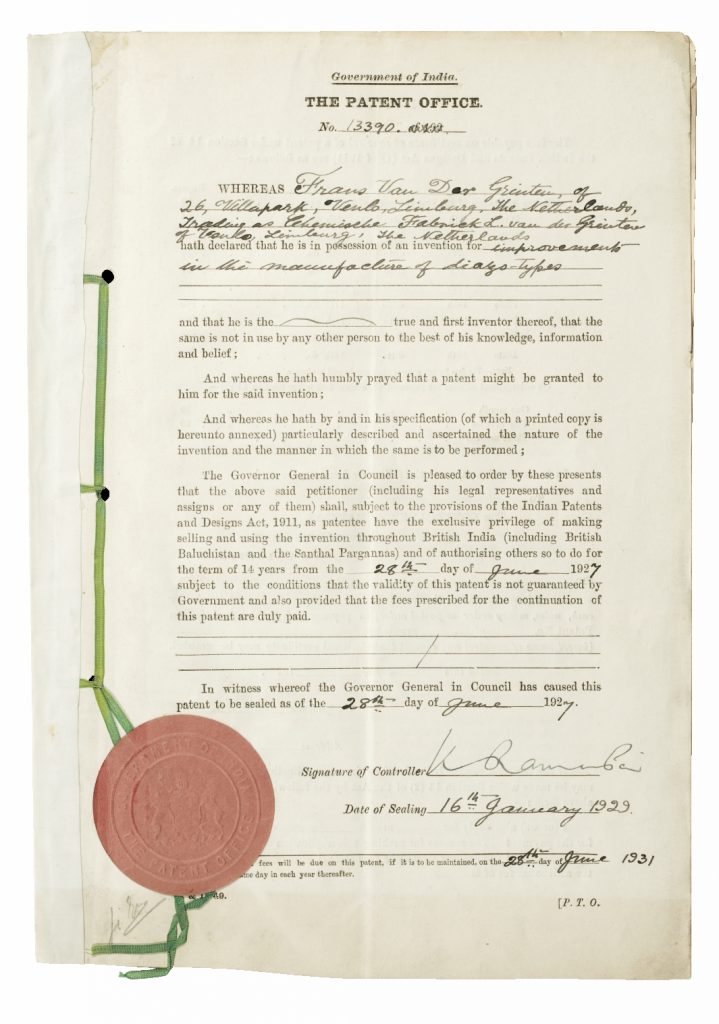 Government of India.
THE PATENT OFFICE.
No. 13390.
WHEREAS Frans Van Der Grinten, of
26, Villapark, Venlo, Limburg, The Netherlands,
Trading as Chemische Fabrick L. van der Grinten
of Venlo, Limburg, The Netherlands
hath declared that he is in possession of an invention for improvements
in the manufacture of diazo-types
and that he is the true and first inventor thereof, that the
same is not in use by any other person to the best of his knowledge, information
and belief;
And whereas he hath humbly prayed that a patent might be granted to
him for the said invention;
And whereas he hath by and in his specification (of which a printed copy is
hereunto annexed) particularly described and ascertained the nature of the
invention and the manner in which the same is to be performed;
The Governor General in Council is pleased to order by these presents
that the above said petitioner (including his legal representatives and
assigns or any of them) shall, subject to the provisions of the Indian Patents
and Designs Act, 1911, as patentee have the exclusive privilege of making
selling and using the invention throughout British India (including British
Baluchistan and the Santhal Pargannas) and of authorising others so to do for
the term of 14 years from the 28th day of June 1927
subject to the conditions that the validity of this patent is not guaranteed by
Government and also provided that the fees prescribed for the continuation of
this patent are duly paid.
In witness whereof the Governor General in Council has caused this
patent to be sealed as of the 28th day of June 1927.
Signature of Controller K
Date of Sealing 16th January 1929.
fees will be due on this patent, if it is to be maintained, on the 28th day of June 1931
me day in each year thereafter.
49.
[P. T. O.
THE PATENT OFFICE